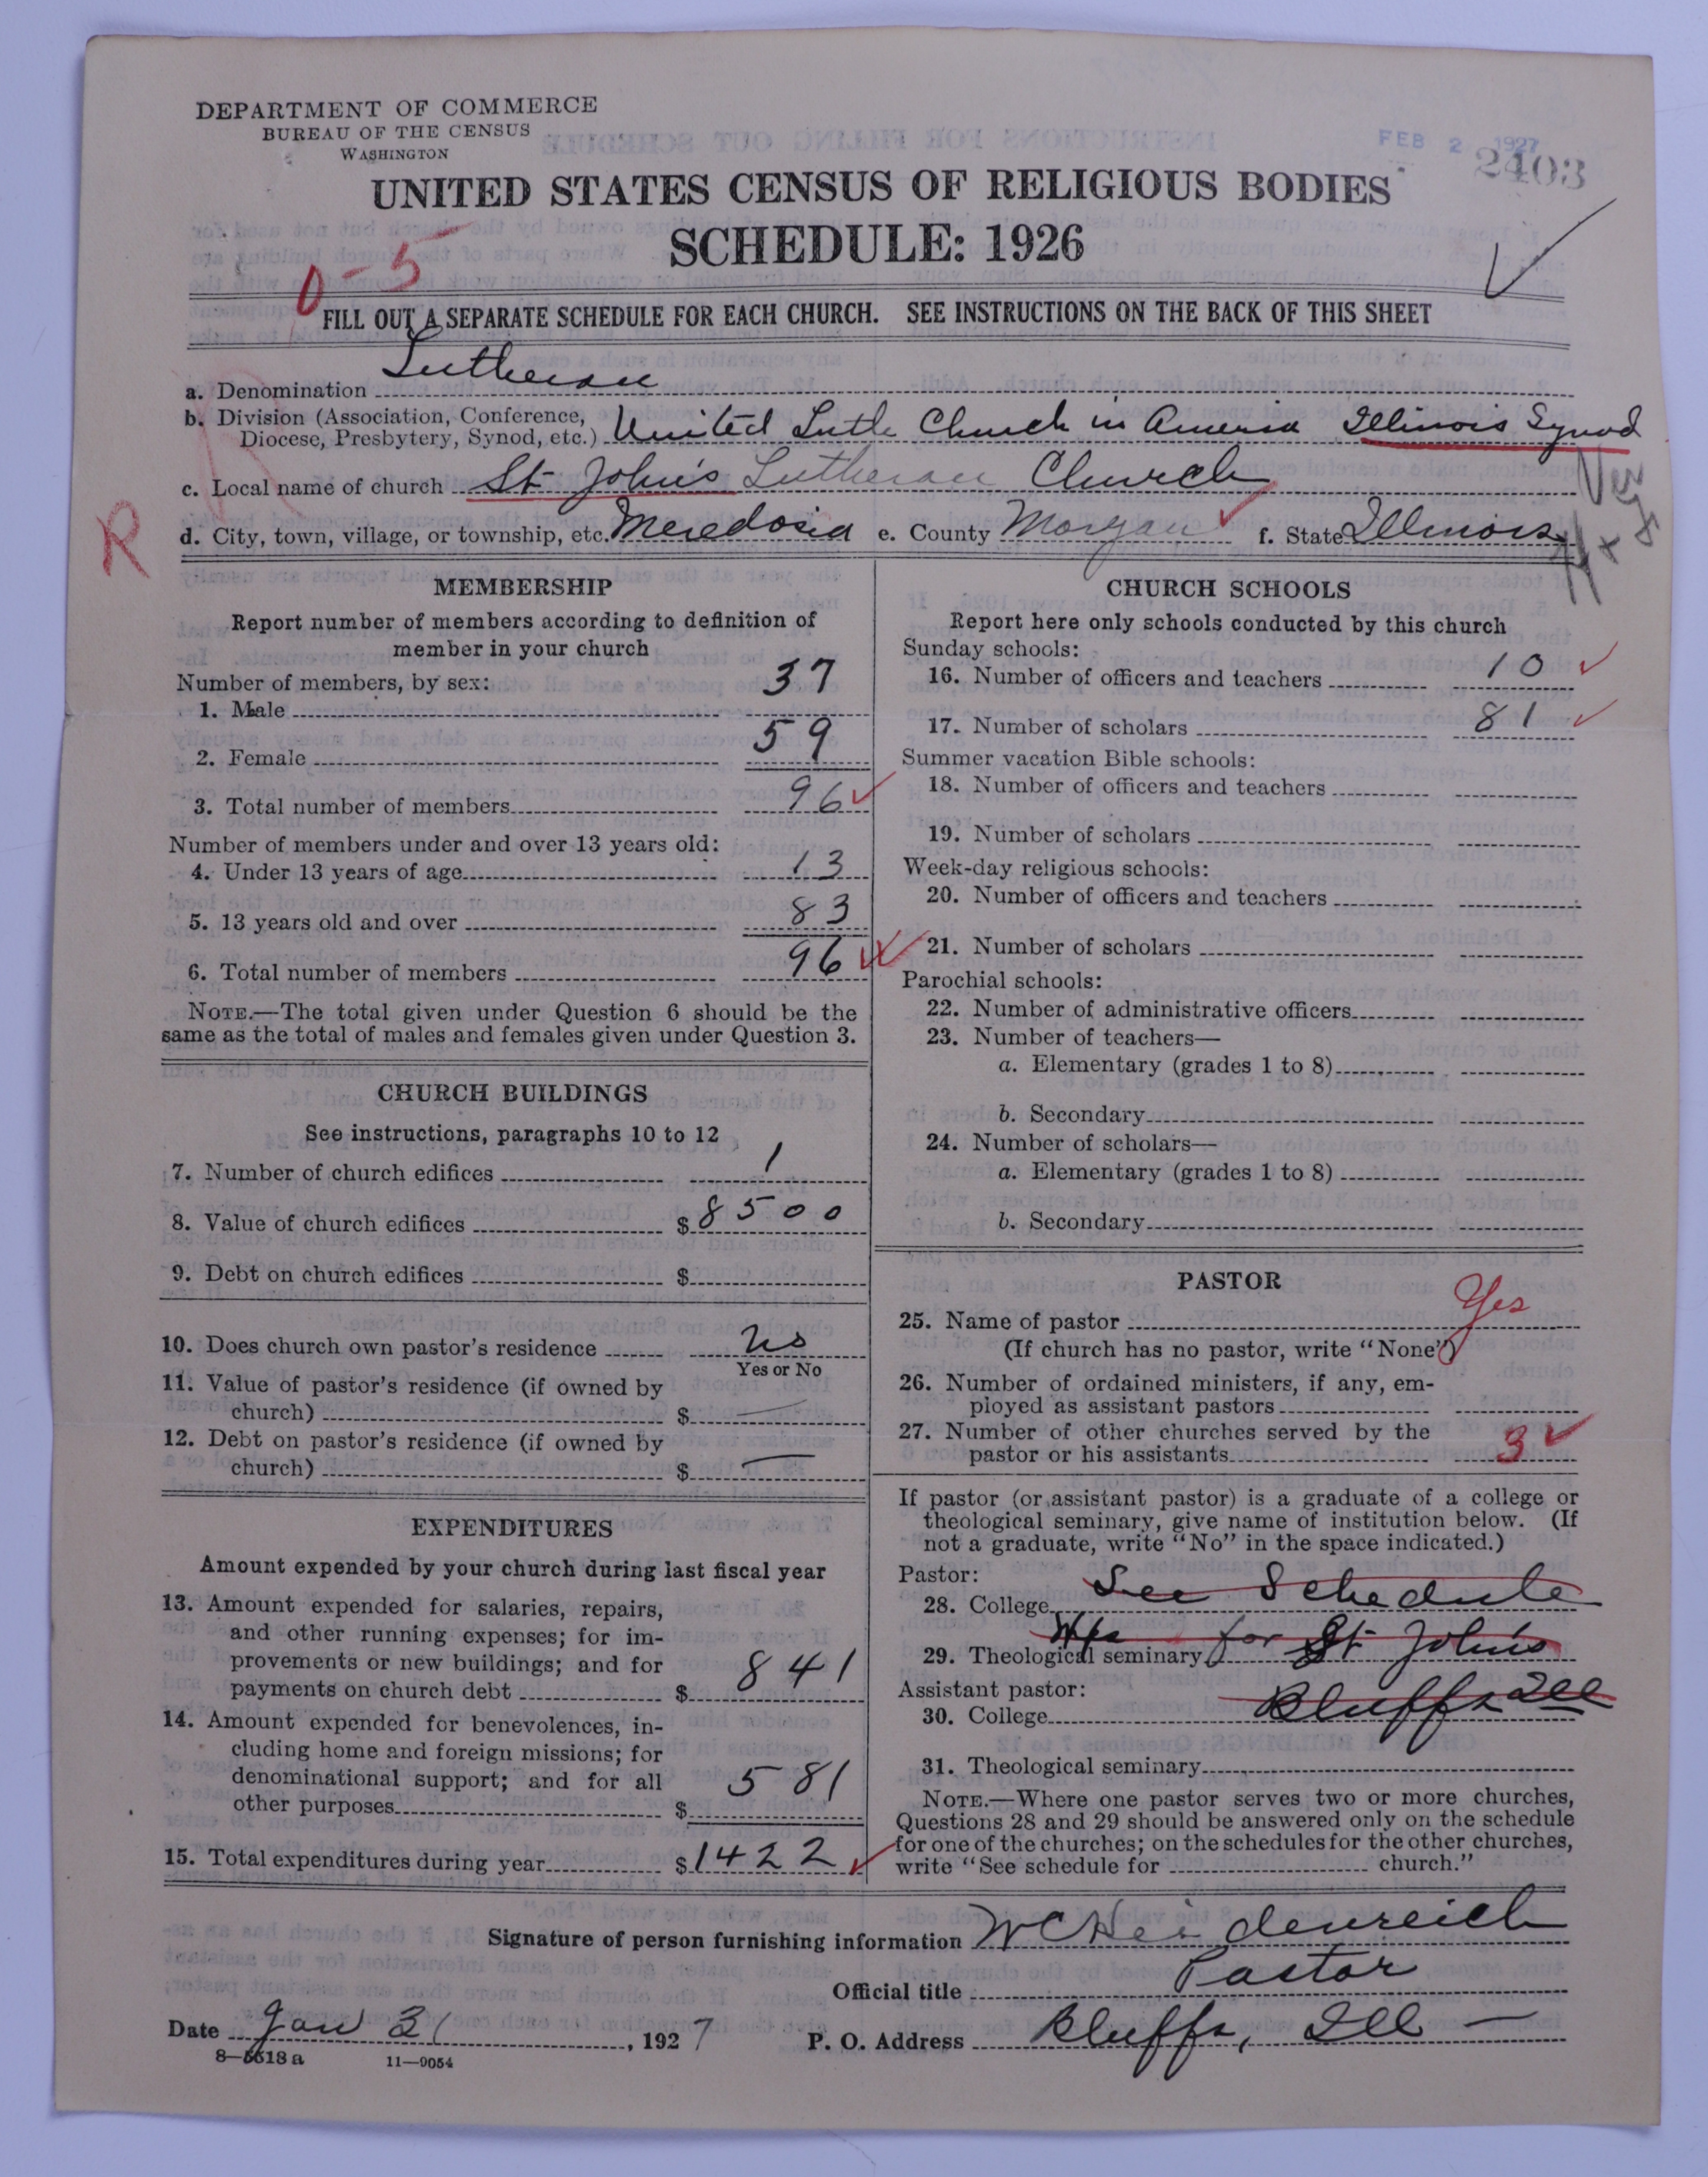 DEPARTMENT OF COMMERCE
BUREAU OF THE CENSUS
WASHINGTON
FEB 2 1927
2403
UNITED STATES CENSUS OF RELIGIOUS BODIES
SCHEDULE: 1926
0-5
FILL OUT A SEPARATE SCHEDULE FOR EACH CHURCH. SEE INSTRUCTIONS ON THE BACK OF THIS SHEET
a. Denomination Lutheran
b. Division (Association, Conference,
Diocese, Presbytery, Synod, etc.) United Luth Church in America Illinois Synod
c. Local name of church St John's Lutheran Church
R
d. City, town, village, or township, etc. Meredosia e. County Morgan f. State Illinois
MEMBERSHIP
Report number of members according to definition of
member in your church
Number of members, by sex:
1. Male 37
2. Female 59
3. Total number of members 96
Number of members under and over 13 years old:
4. Under 13 years of age 13
5. 13 years old and over 83
6. Total number of members 96
NOTE.—The total given under Question 6 should be the
same as the total of males and females given under Question 3.
CHURCH BUILDINGS
See instructions, paragraphs 10 to 12
7. Number of church edifices 1
8. Value of church edifices $ 8500
9. Debt on church edifices $
10. Does church own pastor's residence No
Yes or No
11. Value of pastor's residence (if owned by
church) $ —
12. Debt on pastor's residence (if owned by
church) $ —
EXPENDITURES
Amount expended by your church during last fiscal year
13. Amount expended for salaries, repairs,
and other running expenses; for im-
provements or new buildings; and for
payments on church debt $ 841
14. Amount expended for benevolences, in-
cluding home and foreign missions; for
denominational support; and for all
other purposes $ 581
15. Total expenditures during year $ 1422
CHURCH SCHOOLS
Report here only schools conducted by this church
Sunday schools:
16. Number of officers and teachers 10
17. Number of scholars 81
Summer vacation Bible schools:
18. Number of officers and teachers
19. Number of scholars
Week-day religious schools:
20. Number of officers and teachers
21. Number of scholars
Parochial schools:
22. Number of administrative officers
23. Number of teachers—
a. Elementary (grades 1 to 8)
b. Secondary
24. Number of scholars—
a. Elementary (grades 1 to 8)
b. Secondary
PASTOR
25. Name of pastor Yes
(If church has no pastor, write "None")
26. Number of ordained ministers, if any, em-
ployed as assistant pastors
27. Number of other churches served by the
pastor or his assistants 3
If pastor (or assistant pastor) is a graduate of a college or
theological seminary, give name of institution below. (If
not a graduate, write "No" in the space indicated.)
Pastor:
28. College See Schedule
29. Theological seminary for St John's
Assistant pastor:
30. College Bluffs Ill
31. Theological seminary
NOTE.—Where one pastor serves two or more churches,
Questions 28 and 29 should be answered only on the schedule
for one of the churches; on the schedules for the other churches,
write "See schedule for church."
Signature of person furnishing information W C Heidenreich
Official title Pastor
Date Jan 31, 1927 P. O. Address Bluffs, Ill —
8—5518 a 11—9054